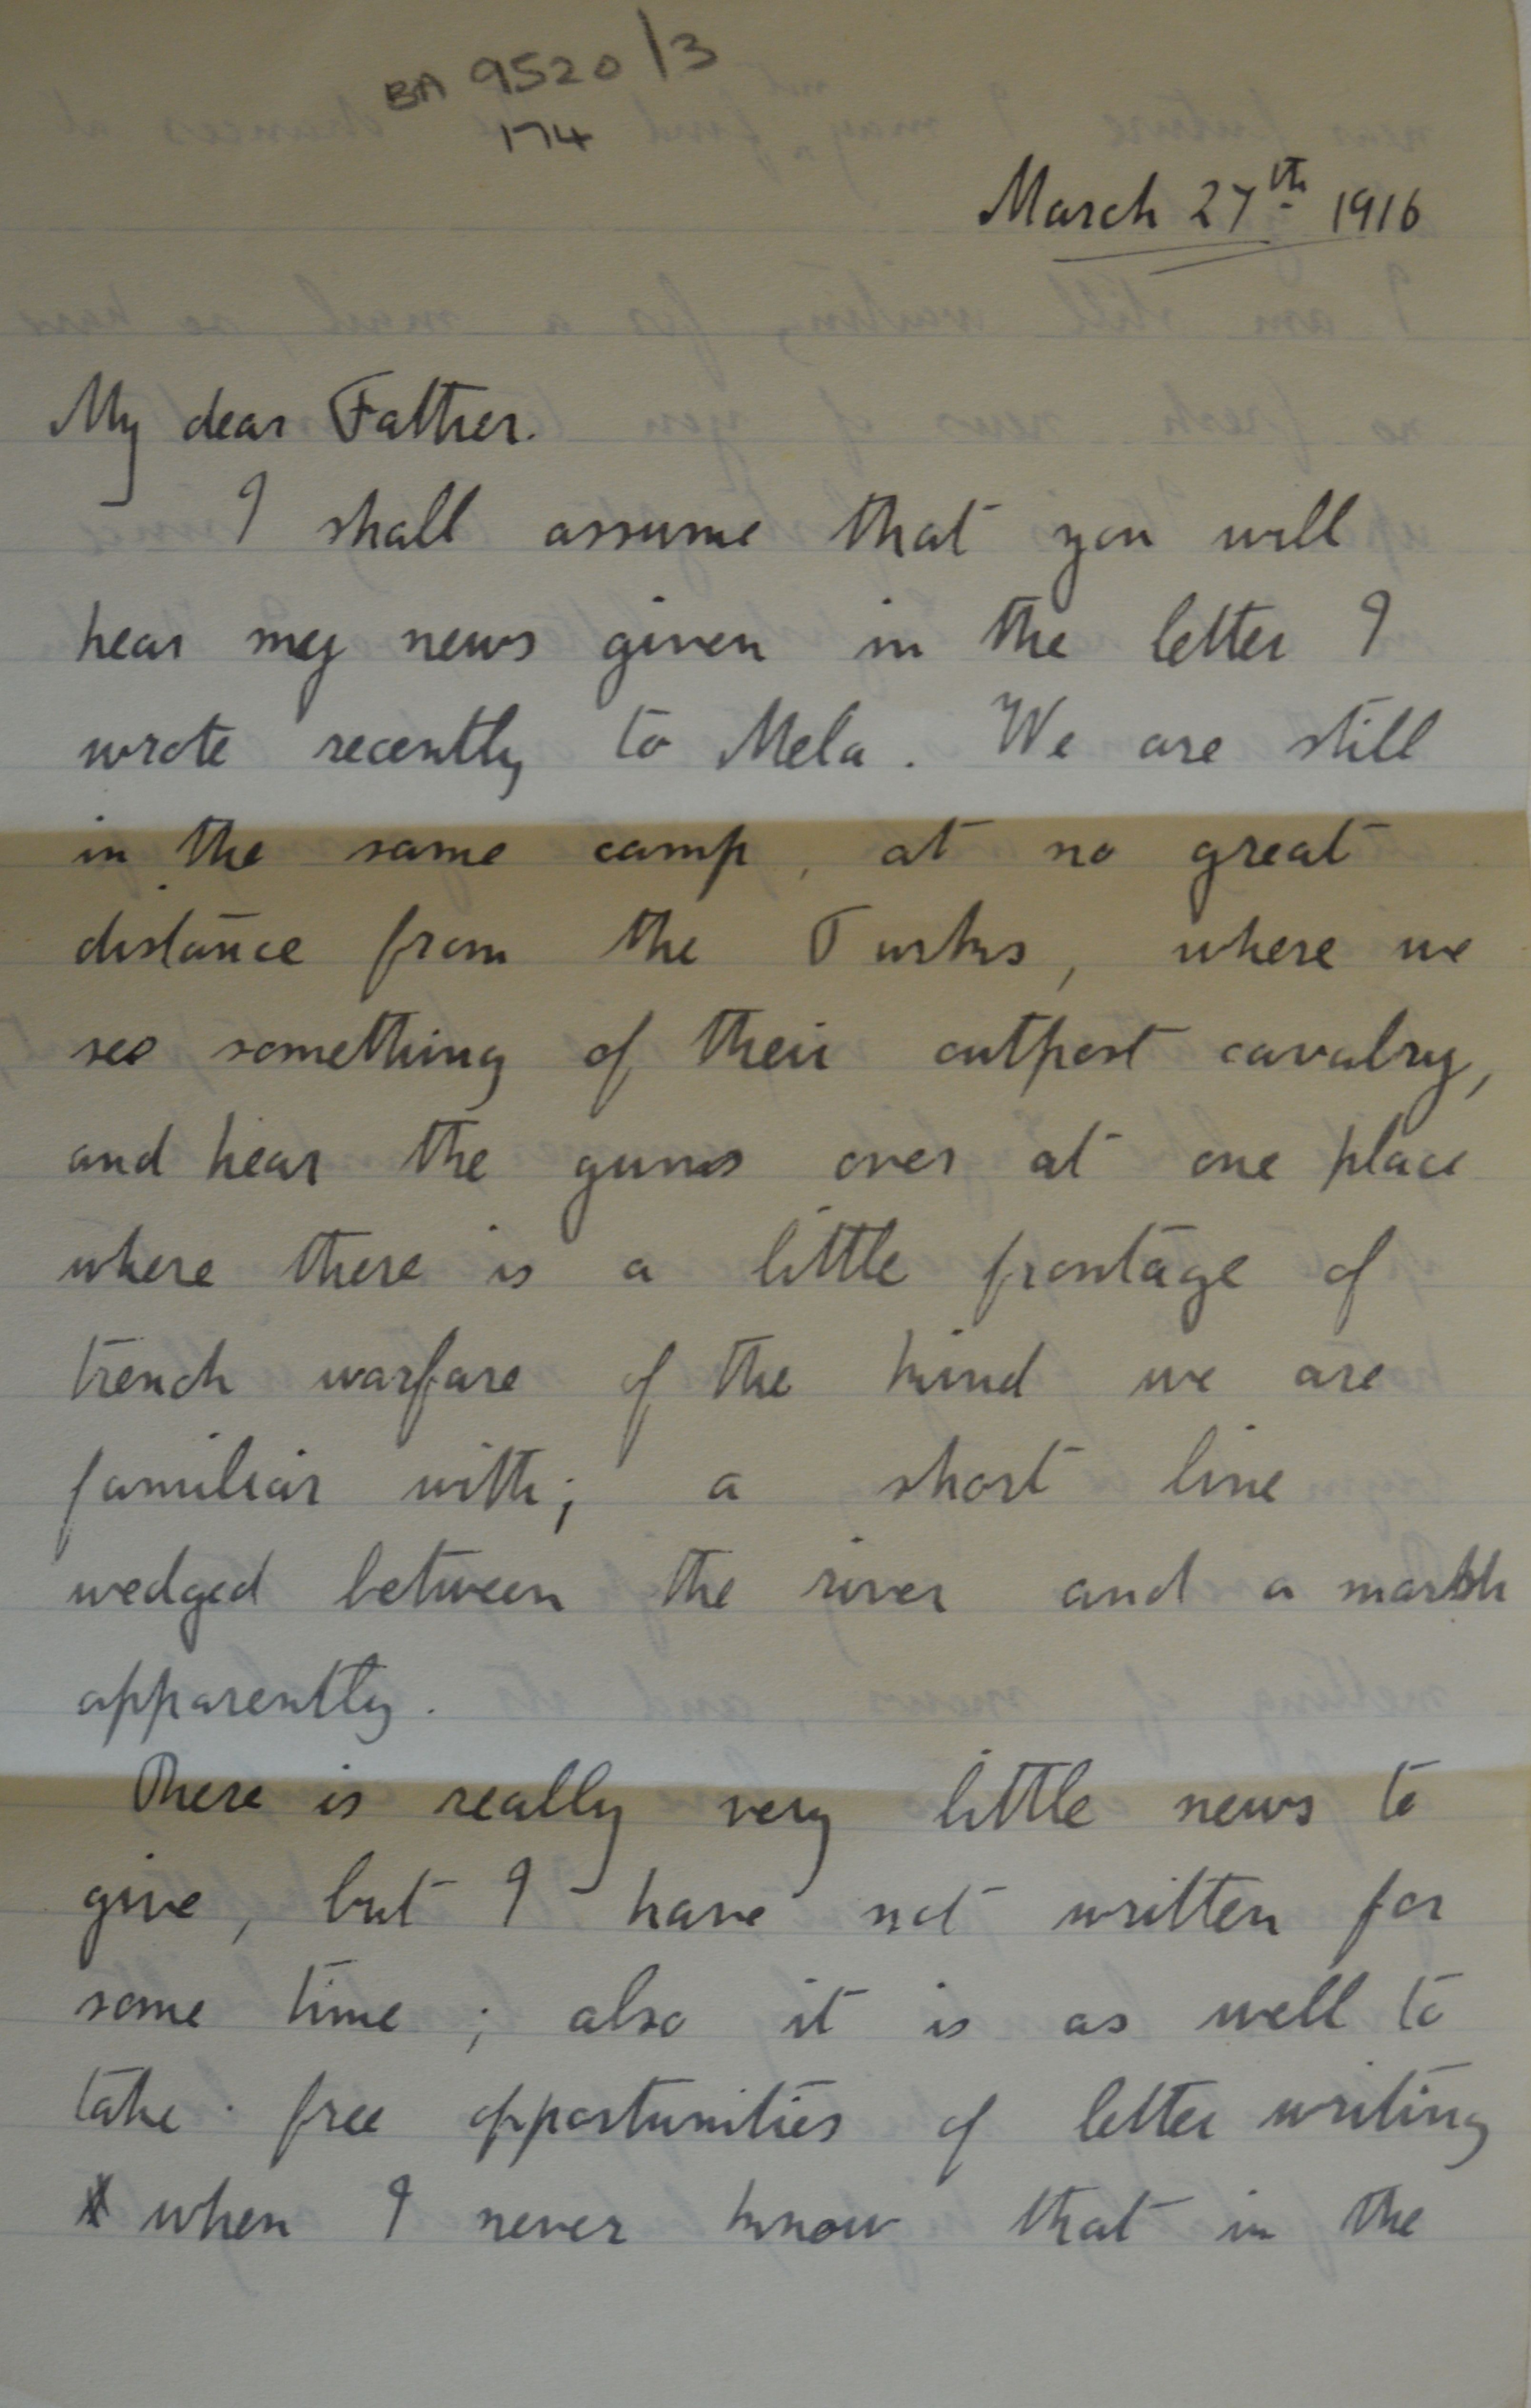 BA 9520/3
174
March 27th 1916
My dear Father.
I shall assume that you will
hear my news given in the letter I
wrote recently to Mela. We are still
in the same camp, at no great
distance from the Turks, where we
see something of their outpost cavalry,
and hear the guns over at one place
where there is a little frontage of
trench warfare of the kind we are
familiar with; a short line
wedged between the river and a marsh
apparently.
There is really very little news to
give, but I have not written for
some time; also it is as well to
take free opportunities of letter writing
when I never know that in the